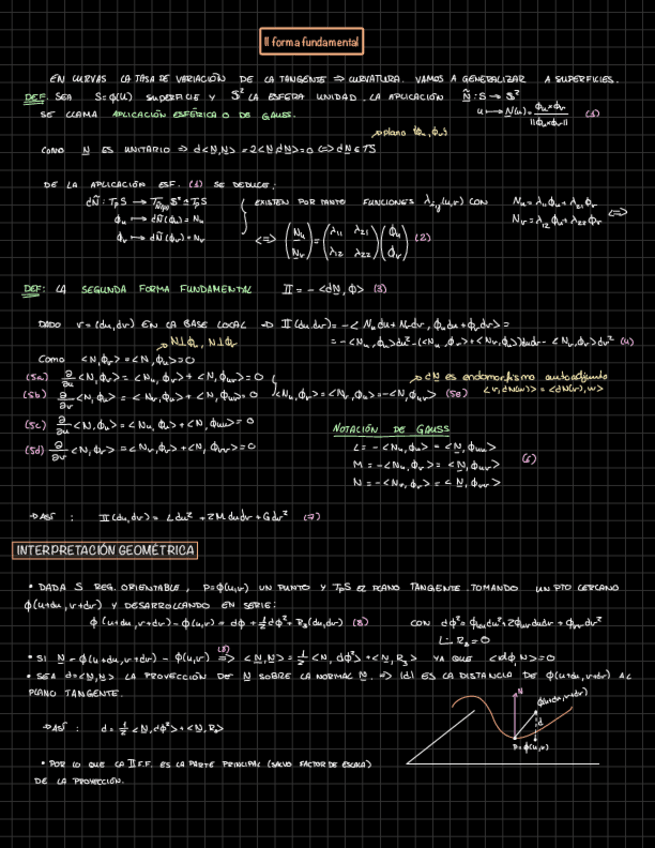 II forma fundamental
EN CURVAS LA TASA DE VARIACIÓN DE LA TANGENTE ⇒ CURVATURA. VAMOS A GENERALIZAR A SUPERFICIES.
DEF. SEA S=ϕ(U) SUPERFICIE Y S² LA ESFERA UNIDAD. LA APLICACIÓN Ñ: S → S²
SE LLAMA APLICACIÓN ESFÉRICA O DE GAUSS. u ↦ N(u) = ϕu×ϕv / ||ϕu×ϕv|| (1)
→ plano {ϕu, ϕv}
COMO N ES UNITARIO ⇒ d<N,N> = 2<N,dN> = 0 ⇔ dN ∈ TS
DE LA APLICACIÓN ESF. (1) SE DEDUCE:
dÑ : TpS → TÑ(p)S² ≅ TpS { EXISTEN POR TANTO FUNCIONES λij(u,v) CON Nu = λ11ϕu + λ21ϕv
ϕu ↦ dÑ(ϕu) = Nu Nv = λ12ϕu + λ22ϕv ⇔
ϕv ↦ dÑ(ϕv) = Nv ⇔ (Nu Nv) = (λ11 λ21 λ12 λ22)(ϕu ϕv) (2)
DEF: LA SEGUNDA FORMA FUNDAMENTAL II = - <dN, ϕ> (3)
DADO v = (du,dv) EN LA BASE LOCAL ⇒ II(du,dv) = -< Nudu + Nvdv, ϕudu + ϕvdv> =
= -<Nu, ϕu>du² - (<Nu, ϕv> + <Nv, ϕu>)dudv - <Nv, ϕv>dv² (4)
→ N⊥ϕu, N⊥ϕv
COMO <N,ϕv> = <N,ϕu> = 0
→ dN es endomorfismo autoadjunto
<v, dN(w)> = <dN(v), w>
(5a) ∂/∂u <N,ϕv> = <Nu, ϕv> + <N, ϕuv> = 0
(5b) ∂/∂v <N,ϕu> = <Nv, ϕu> + <N, ϕuv> = 0 } <Nu, ϕv> = <Nv, ϕu> = -<N, ϕuv> (5e)
(5c) ∂/∂u <N,ϕu> = <Nu, ϕu> + <N, ϕuu> = 0
(5d) ∂/∂v <N,ϕv> = <Nv, ϕv> + <N, ϕvv> = 0
NOTACIÓN DE GAUSS
L = - <Nu, ϕu> = <N, ϕuu>
M = - <Nu, ϕv> = <N, ϕuv> (6)
N = - <Nv, ϕv> = <N, ϕvv>
⇒ ASÍ : II(du,dv) = Ldu² + 2Mdudv + Gdv² (7)
INTERPRETACIÓN GEOMÉTRICA
• DADA S REG. ORIENTABLE, P=ϕ(u,v) UN PUNTO Y TpS EL PLANO TANGENTE. TOMANDO UN PTO CERCANO
ϕ(u+du, v+dv) Y DESARROLLANDO EN SERIE:
ϕ(u+du, v+dv) - ϕ(u,v) = dϕ + ½dϕ² + R3(du,dv) (8) CON dϕ² = ϕuudu² + 2ϕuvdudv + ϕvvdv²
L- R3 = 0
• SI N - ϕ(u+du, v+dv) - ϕ(u,v) ⇒(8) <N,N> = ½<N, dϕ²> + <N, R3> YA QUE <dϕ, N> = 0
• SEA d=<N,N> LA PROYECCIÓN DE N SOBRE LA NORMAL N. ⇒ |d| ES LA DISTANCIA DE ϕ(u+du, v+dv) AL
PLANO TANGENTE.
⇒ ASÍ : d = ½ <N, dϕ²> + <N, R3>
N
ϕ(u+du, v+dv)
d
P=ϕ(u,v)
• POR LO QUE LA II F.F. ES LA PARTE PRINCIPAL (SALVO FACTOR DE ESCALA)
DE LA PROYECCIÓN.